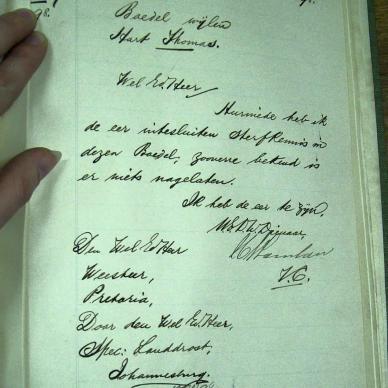 98.
Boedel wijlen
Hart Thomas.
Wel Ed. Heer
Hiermede heb ik
de eer intesluiten Sterfkennis in
dezen Boedel, zooverre bekend is
er niets nagelaten.
Ik heb de eer te zijn,
WEd. Dw. Dienaar,
Den Wel Ed Heer
Weesheer,
V.C.
Pretoria,
Door den Wel Ed. Heer,
Spec: Landdrost,
Johannesburg.